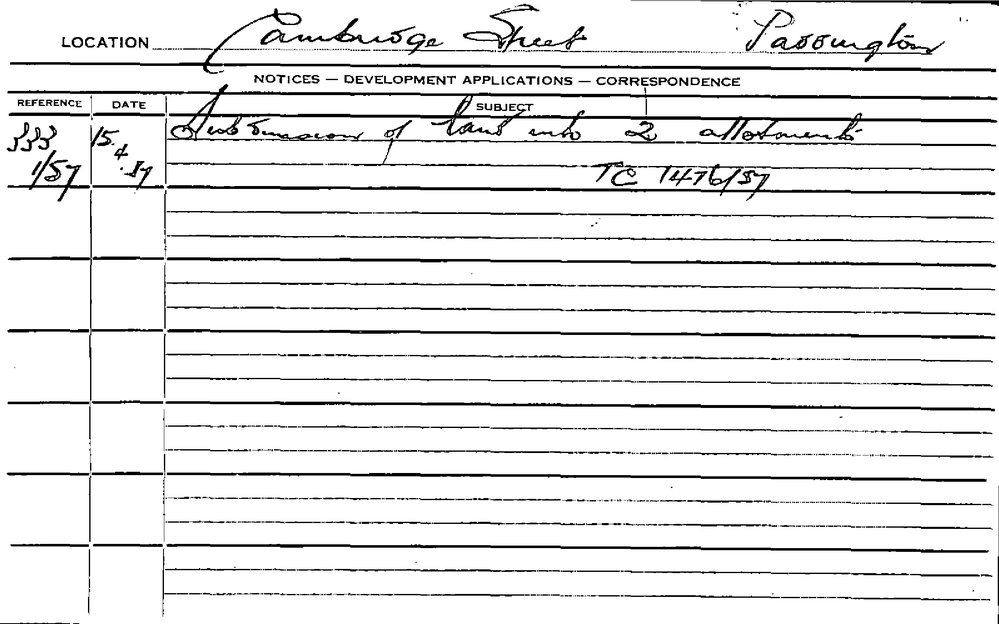 LOCATION Cambridge Street Paddington
NOTICES — DEVELOPMENT APPLICATIONS — CORRESPONDENCE
REFERENCE DATE SUBJECT
333 15. Subdivision of land into 2 allotments
1/57 4.57 TC 1476/57